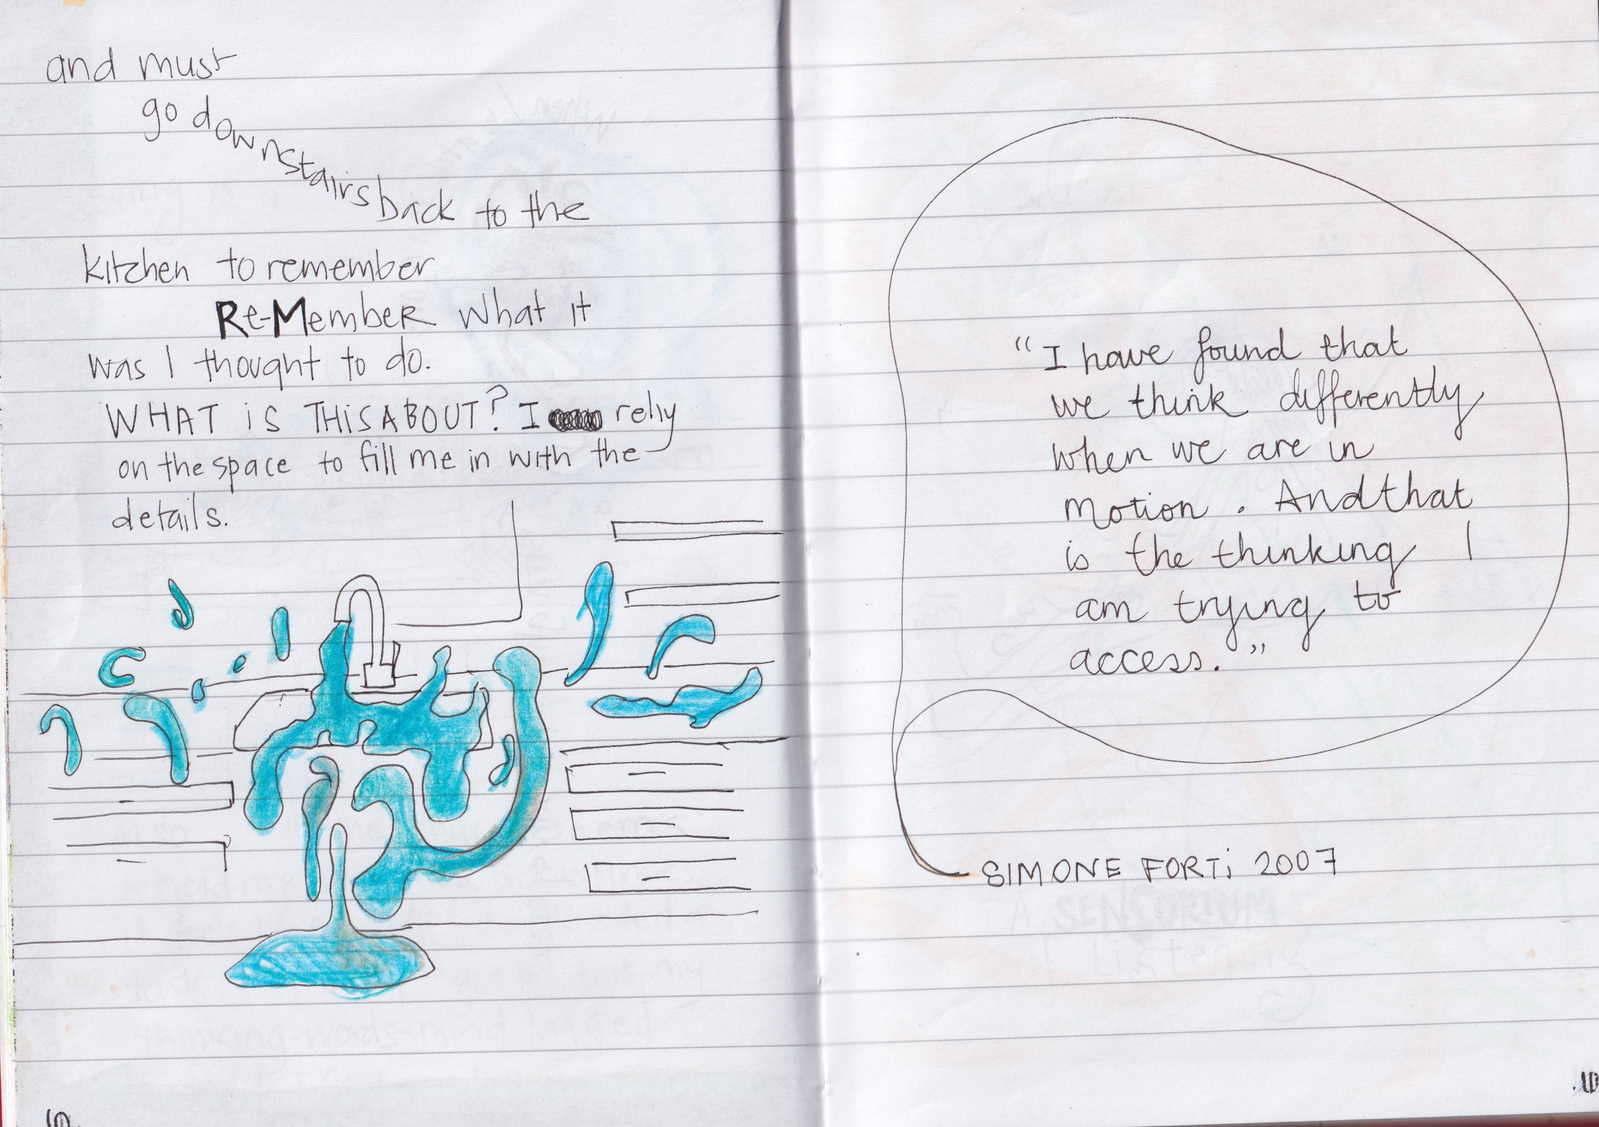 and must
go downstairs back to the
kitchen to remember
Re-MembeR what it
was I thought to do.
WHAT iS THIS ABOUT? I rely
on the space to fill me in with the
details.
"I have found that
we think differently
when we are in
motion. And that
is the thinking I
am trying to
access."
SIMONE FORTi 2007
A SENSORIUM
of Listening